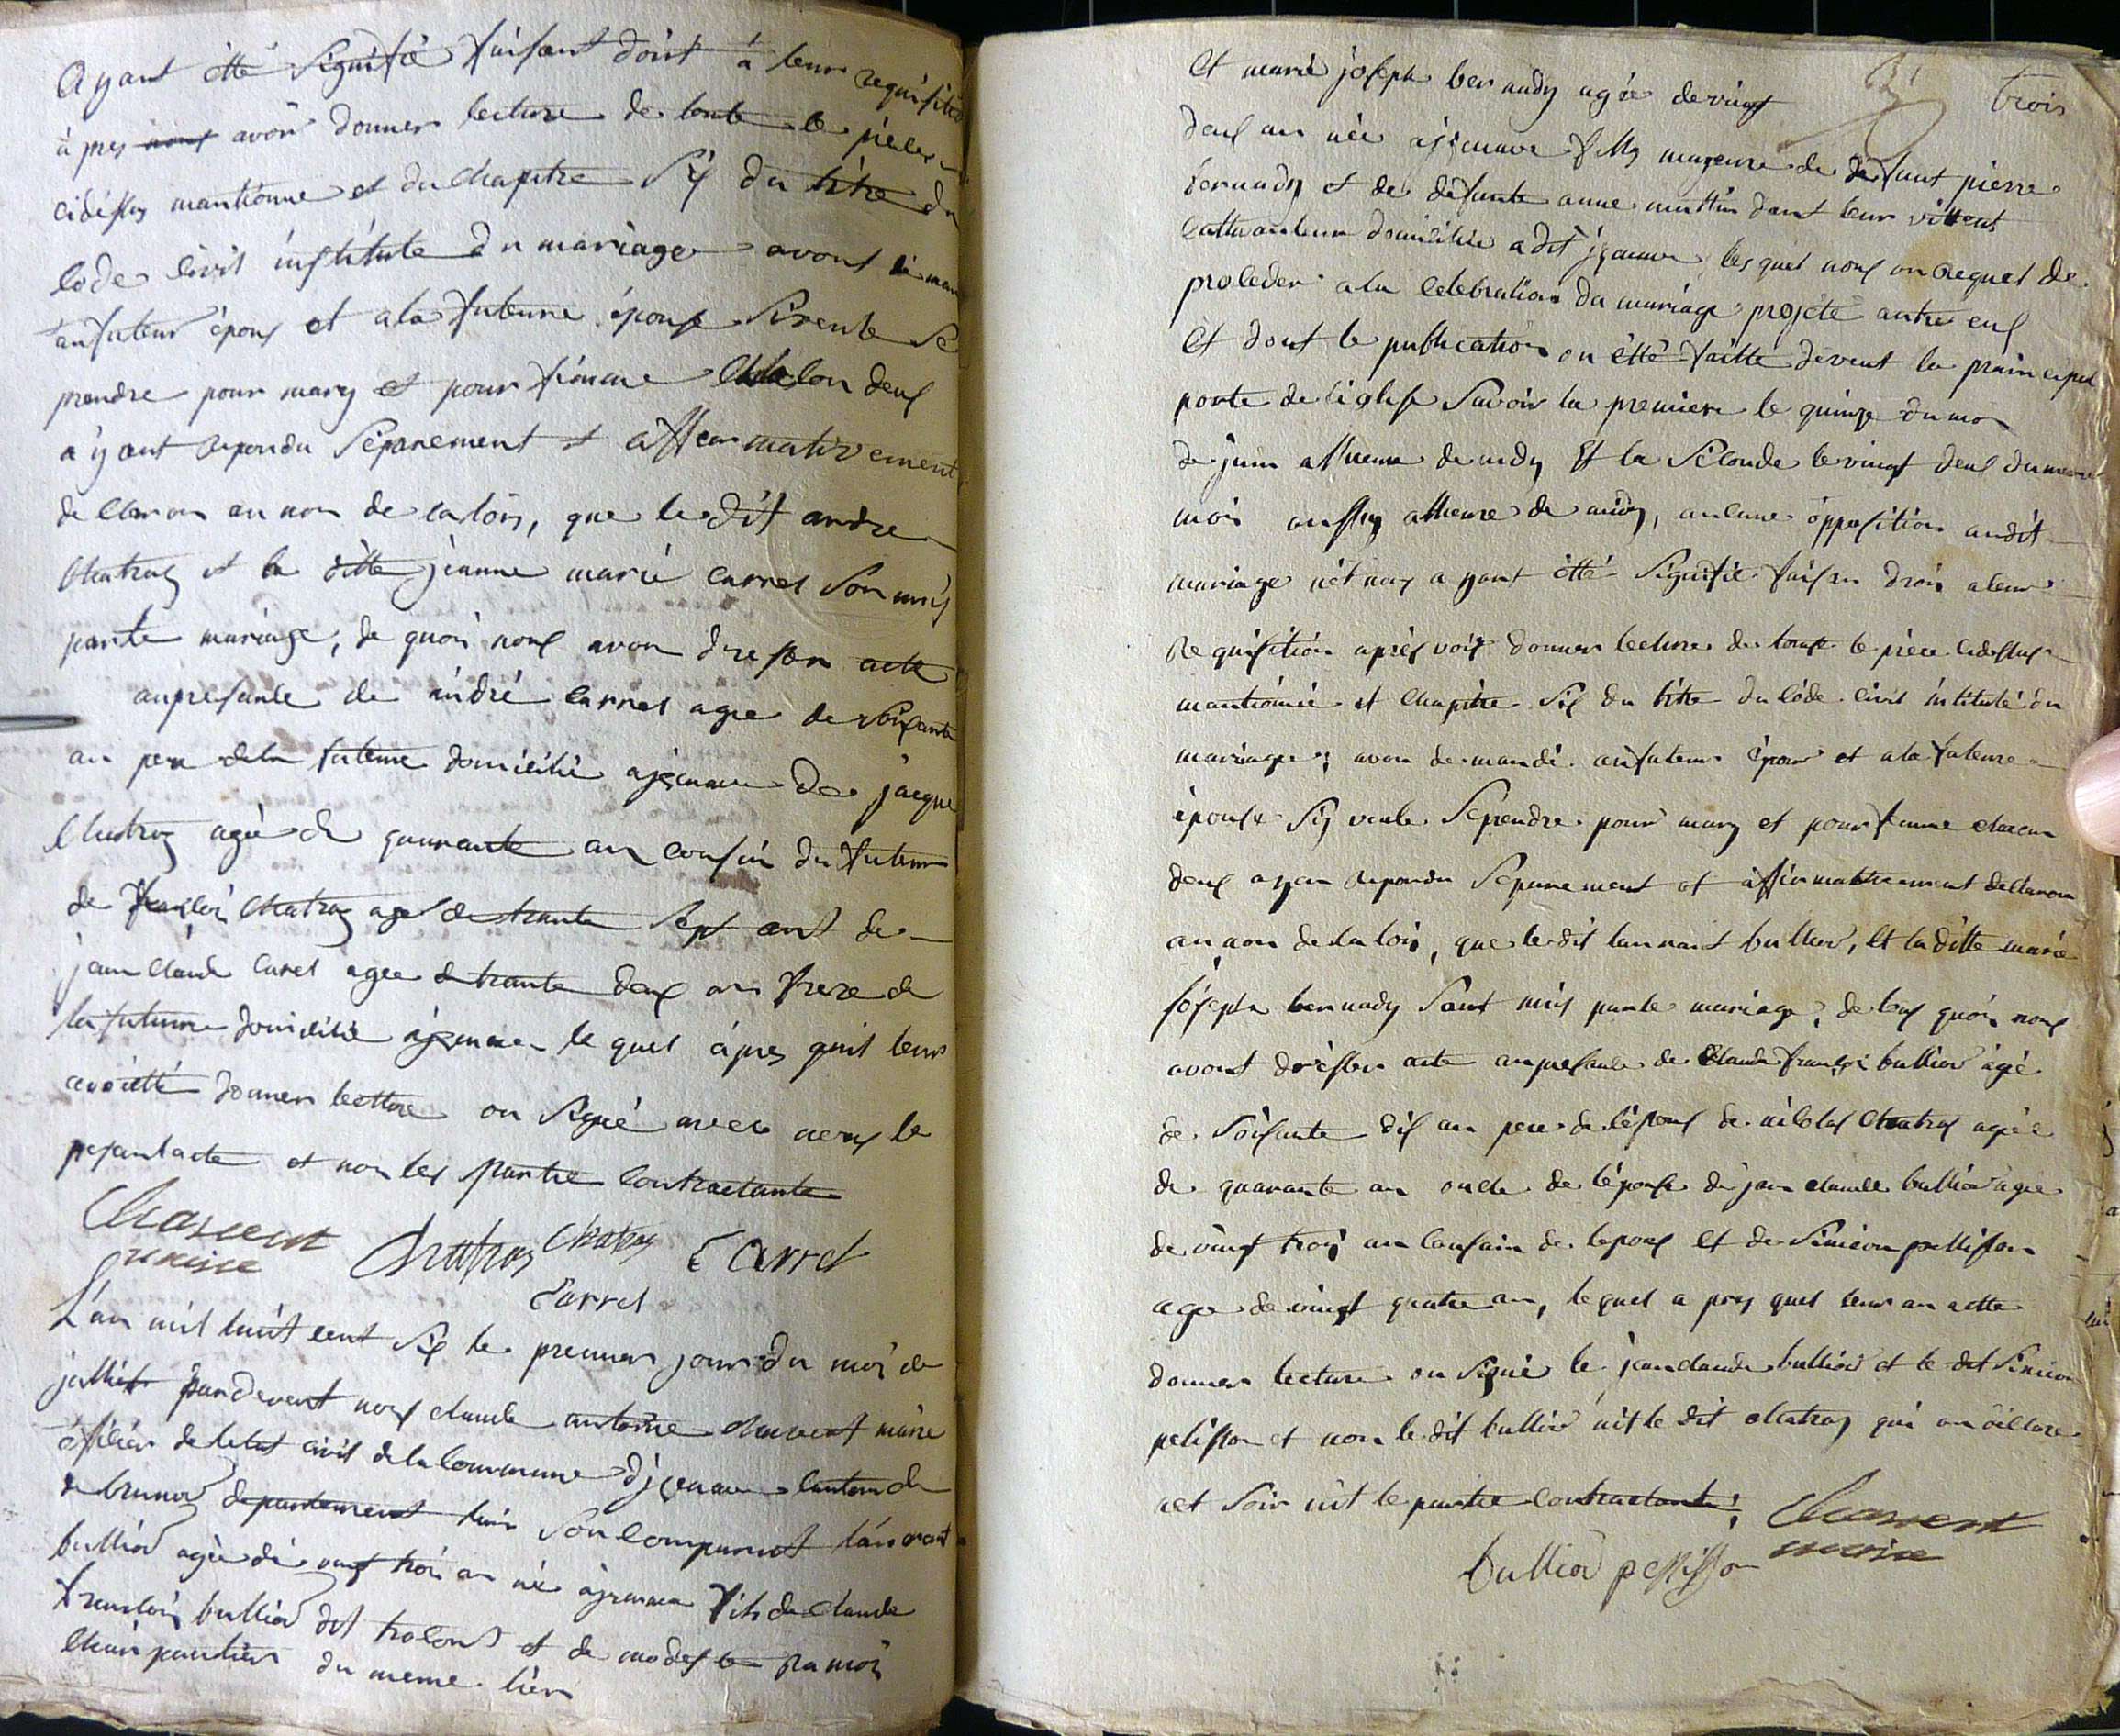 Ayant étté signifié faisant doit à leur requisitio
à pres nous avoir donner lecture de toute le pieces
cidessus mantionne et du chapitre six du titre du
code civil institute du mariage avons deman
au futeur époux et a la futeure épouse si veule se
prendre pour mary et pour femme chacon deux
a yant repondu séparement et affearmativement
declaron au nom de la loix, que le dit andre
Chatras et la ditte jeanne marie carret son unis
par le mariage, de quoi nous avon dresser acte
au presance de andré carret agee de soisante
an pere de la futeure domicilié a jgeaux De jacque
Chatras agée de quarante an cousin du futeur
de françoi chatras age de trante sept ans de
jean claude caret agee de trante deux an frere de
la future domicilié a le quel apres quil leur
avoi etté donner lectture on signé avec nous le
presant acte et non les partie contractante
Chavent
maire Chatras Chatras Carret
Carret
L'an mil huit cent six le premier jour du moi de
julliet par devent nous claude antoine chavent maire
officier de letat civil de la commune canton de
departement son comparut laurant
bulliod agée de vingt troi an né fils de Claude
francoi bulliod dit et de modeste ramoi
du meme lieu
trois
Et marie joseph bernady agée de vingt
deux an née fille mageure de defunt pierre
bernady et de defunte anne mattin dont leur vivent
domicilié a dit les quel nous on requet de
proceder a la celebration du mariage projeté antre eux
Et dont le publication on étté faitte devent la prainsipal
porte de leglise savoir la premiere le quinze du moi
de juin a lheure de midy et la seconde le vingt deux du meme
moi aussy a lheure de midy, aucune opposition audit
mariage nét nous a yant étté signifié faisan droi a leur
Requisition après voir donner lecture de toute le piece cidessus
mantionnée et chapitre six du titre du code civil institulé du
mariage; avon demandé au futeur époux et a la futeure
épouse sy veule se prendre pour mary et pour famme chacun
deux ayan repondu separement et affirmativement declaron
au nom de la loi, que le dit laurant bulliod, et la ditte marie
joseph bernady sont unis par le mariage, de tous quoi nous
avont dresser acte au presance de Claude françoi bulliod agé
de soisante dix an pere de lépoux de nicolas Chatras agée
de quarante an oncle de lépouse de jean claude bulliod agee
de vingt troi an cousain de lepoux et de Simeon pellisson
age de vingt quatre an, le quel a pres quel leur an nette
donner lecture on signé le jean claude bulliod et le dit Simeon
pelisson et non le dit bulliod nit le dit chatras qui on déclare
net soir nit le partie contractante;
Chavent
bulliod pellisson maire